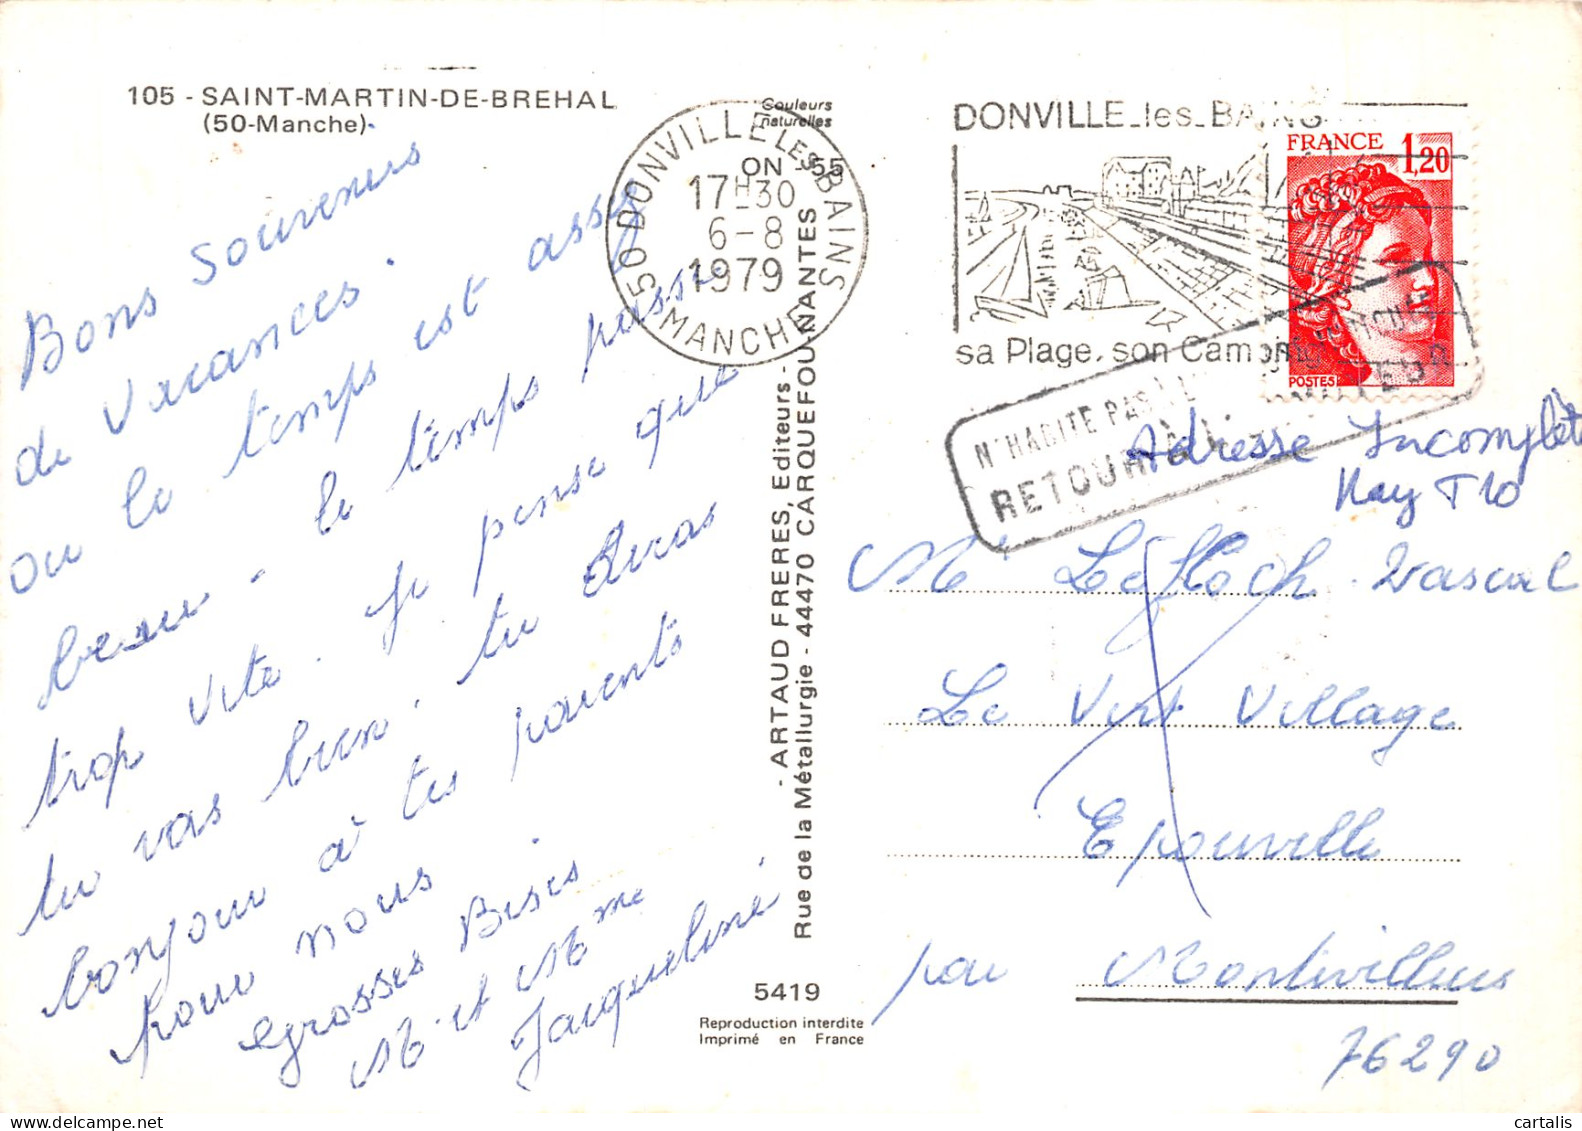 105 - SAINT-MARTIN-DE-BREHAL
(50-Manche)
Couleurs
naturelles
ON 55
Bons Souvenirs
de Vacances.
ou le temps est assez
beau - le temps passe
trop vite. Je pense que
tu vas bien. tu diras
bonjour à tes parents
pour nous
grosses Bises
M. et Mme
Jacqueline
50 DONVILLE LES BAINS
17H30
6-8
1979
MANCHE
DONVILLE-les-BAINS
sa Plage, son Camping
FRANCE 1,20
POSTES
N'HABITE PAS À L'
RETOUR À L'
Adresse Incomplète
Mr Lefloch Pascal
Le Vert Village
Epouville
par Montivilliers
76290
- ARTAUD FRERES, Editeurs -
Rue de la Métallurgie - 44470 CARQUEFOU-NANTES
5419
Reproduction interdite
Imprimé en France
cartalis